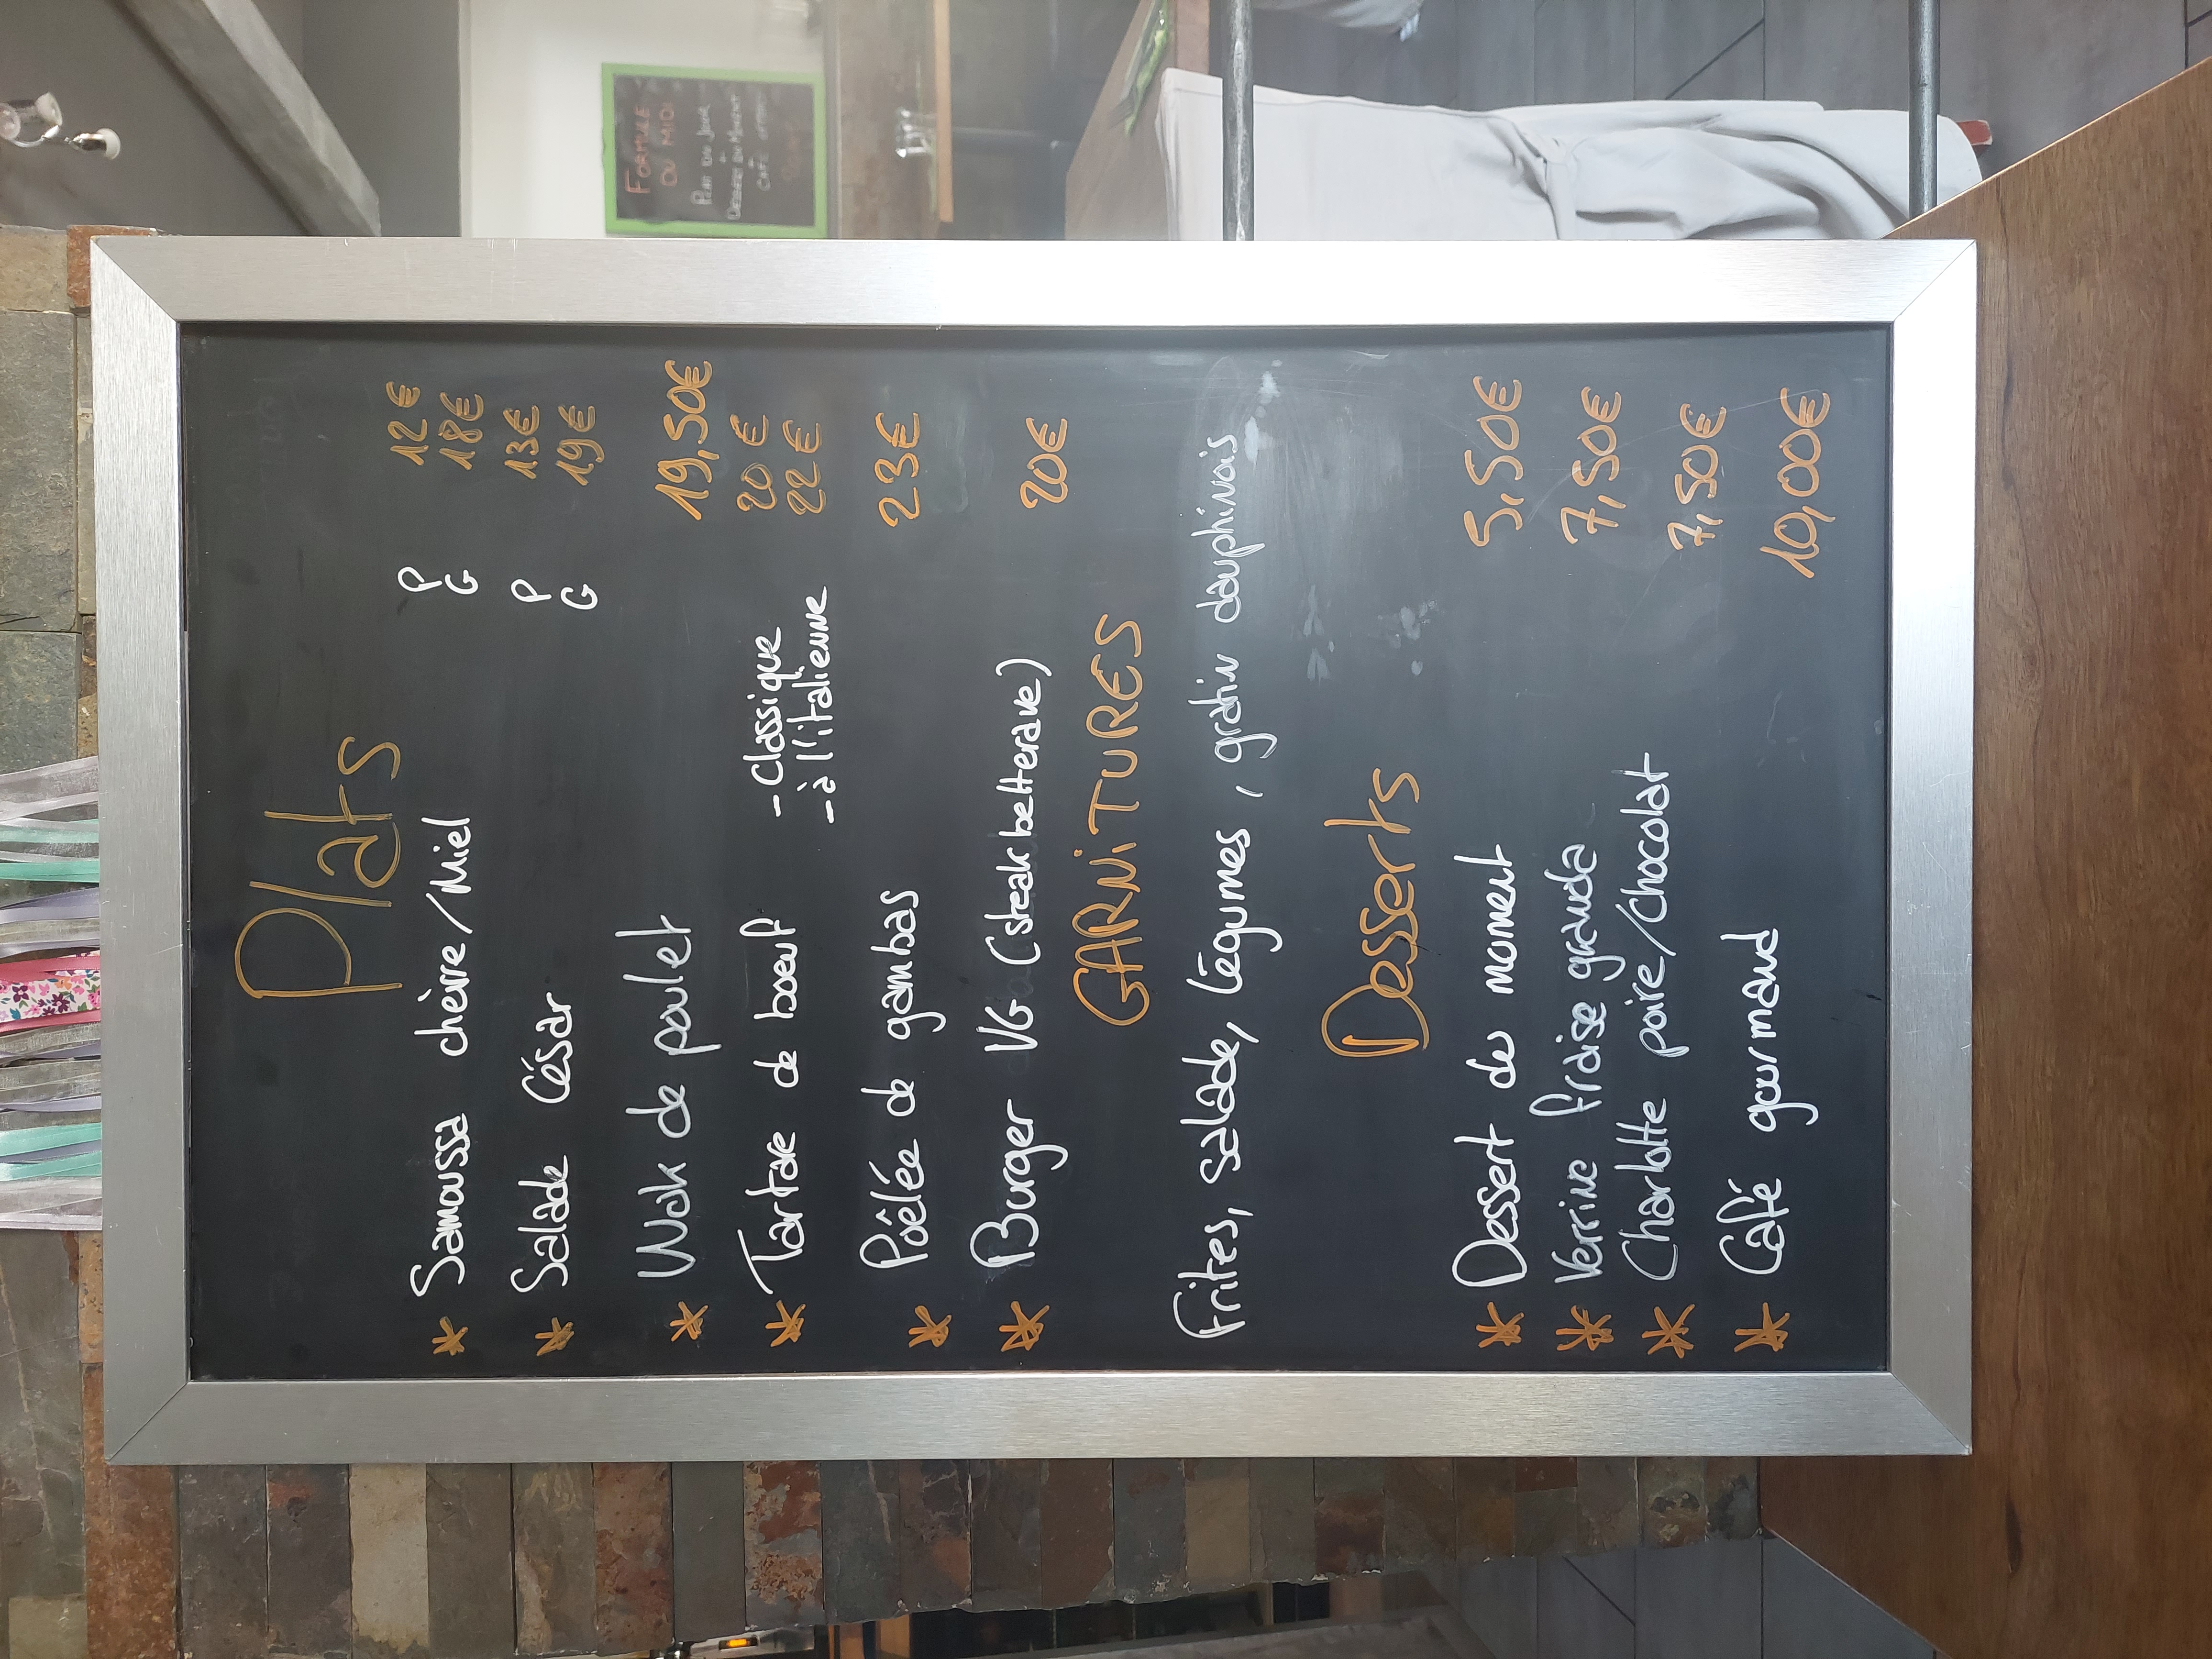 Plats
* Samoussa chèvre/Miel P 12€
G 18€
* Salade César P 13€
G 19€
* Wok de poulet 19,50€
* Tartare de boeuf - Classique 20€
- à l'italienne 22€
* Poêlée de gambas 23€
* Burger VG (steak betterave) 20€
GARNiTURES
Frites, salade, légumes, gratin dauphinois
Desserts
* Dessert du moment 5,50€
* Verrine fraise granola 7,50€
* Charlotte poire/chocolat 7,50€
* Café gourmand 10,00€
FORMULE
DU MIDI
PLAT DU JOUR
DESSERT DU MOMENT
CAFÉ